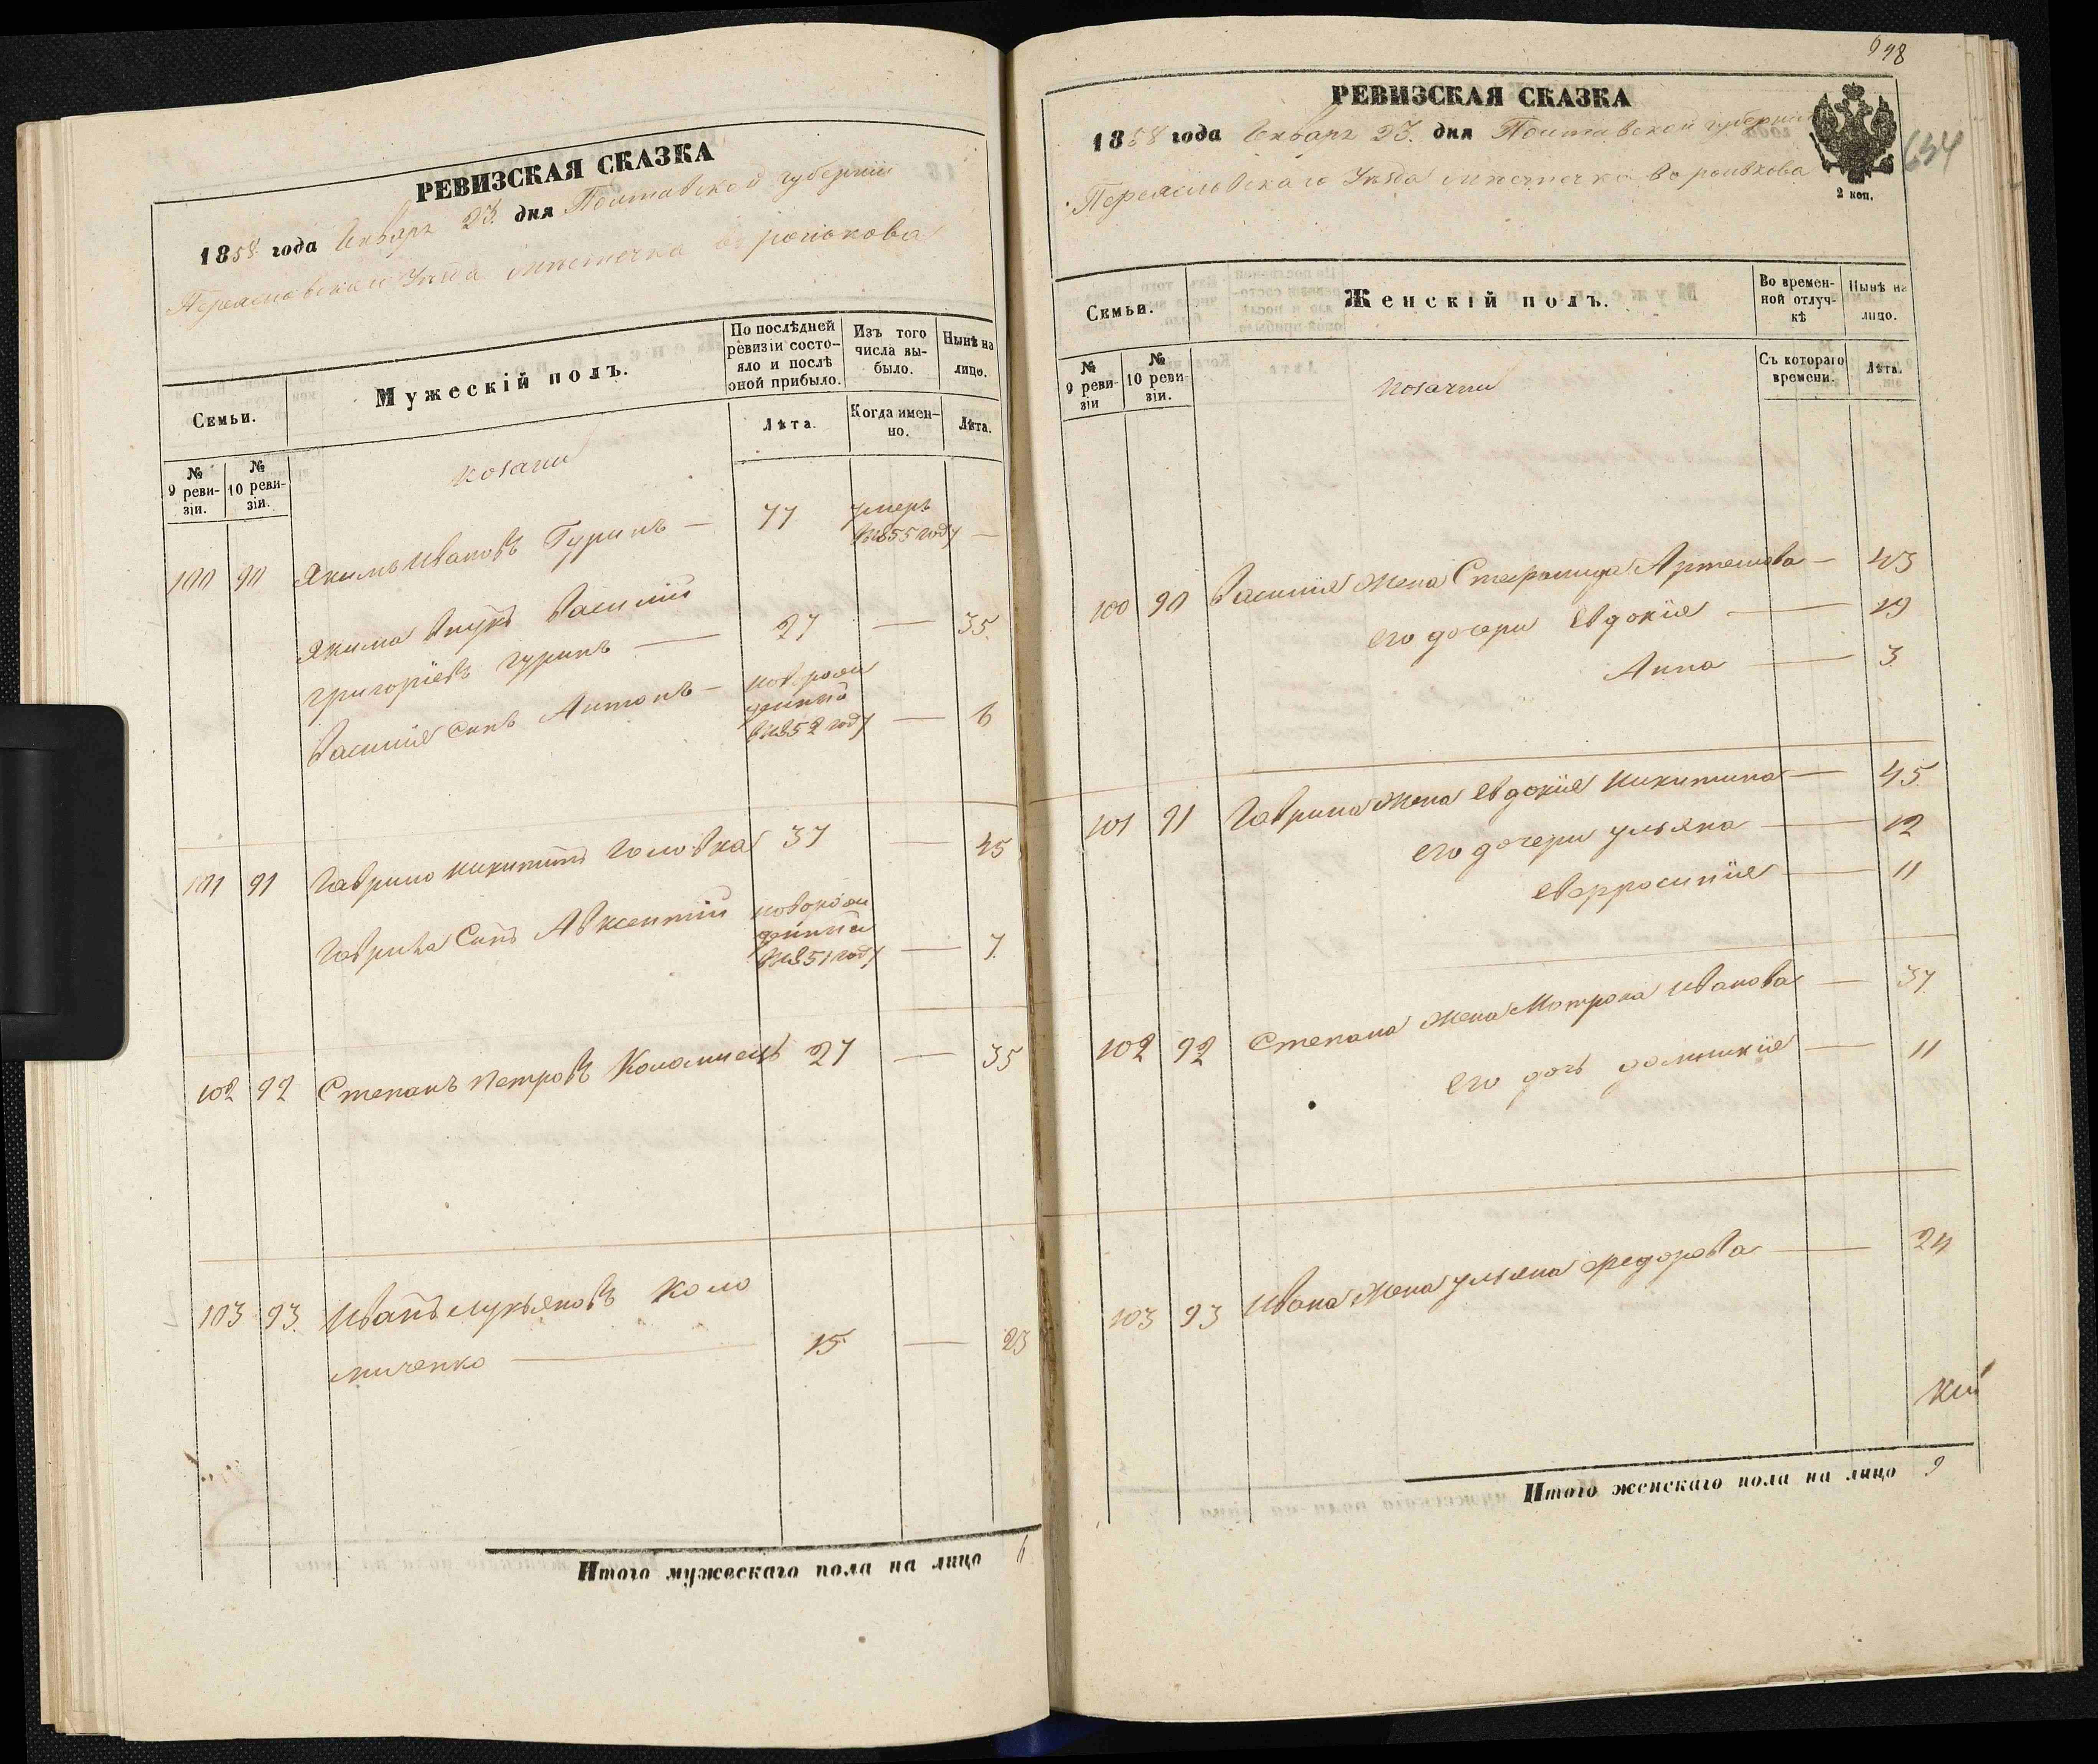 РЕВИЗСКАЯ СКАЗКА
1858 года Января 23. дня Полтавской губерніи
Переяславскаго Уѣзда мѣстечка Воронькова
Семьи.
Мужескій полъ.
По послѣдней ревизіи состо-
яло и послѣ
оной прибыло.
Изъ того
числа вы-
было.
Нынѣ на
лицо.
№
9 реви-
зіи.
№
10 реви-
зіи.
козаки
Лѣта.
Когда имен-
но.
Лѣта.
100 90 Якимъ Ивановъ Гуринъ — 77 умеръ
в 1855 году —
Якима внукъ Василій
григоріевъ гуринъ — 27 — 35.
Василія сынъ Антонъ — новорож
денный
в 1852 году — 6
101 91 Гаврило Никитинъ Головка 37 — 45
Гаврила Сынъ Авксентій новорож
денный
в 1851 году — 7.
102 92 Степанъ Петровъ Коломиецъ 27 — 35
103 93. Иванъ Лукьяновъ Коло
миченко — 15 — 23
Итого мужескаго пола на лицо 6
648
654
РЕВИЗСКАЯ СКАЗКА
1858 года Января 23. дня Полтавской губерніи
Переясловскаго Уѣзда мѣстечка Воронькова
2 коп.
Семьи.
Женскій полъ.
Во времен-
ной отлуч-
кѣ
Нынѣ на
лицо.
№
9 реви-
зіи
№
10 реви-
зіи.
козачки
Съ котораго
времени.
Лѣта.
100 90 Василія Жена Стефанида Артемова — 43
Его дочери Евдокія — 19
Анна — 3.
101 91 Гаврила Жена Евдокія Никитина — 45.
Его дочери Ульяна — 12
Евфросинія — 11
102 92 Степана Жена Мотрона Иванова — 37.
Его дочь домникія — 11
103 93 Ивана Жена Ульяна Федорова — 24
Итого женскаго пола на лицо 9